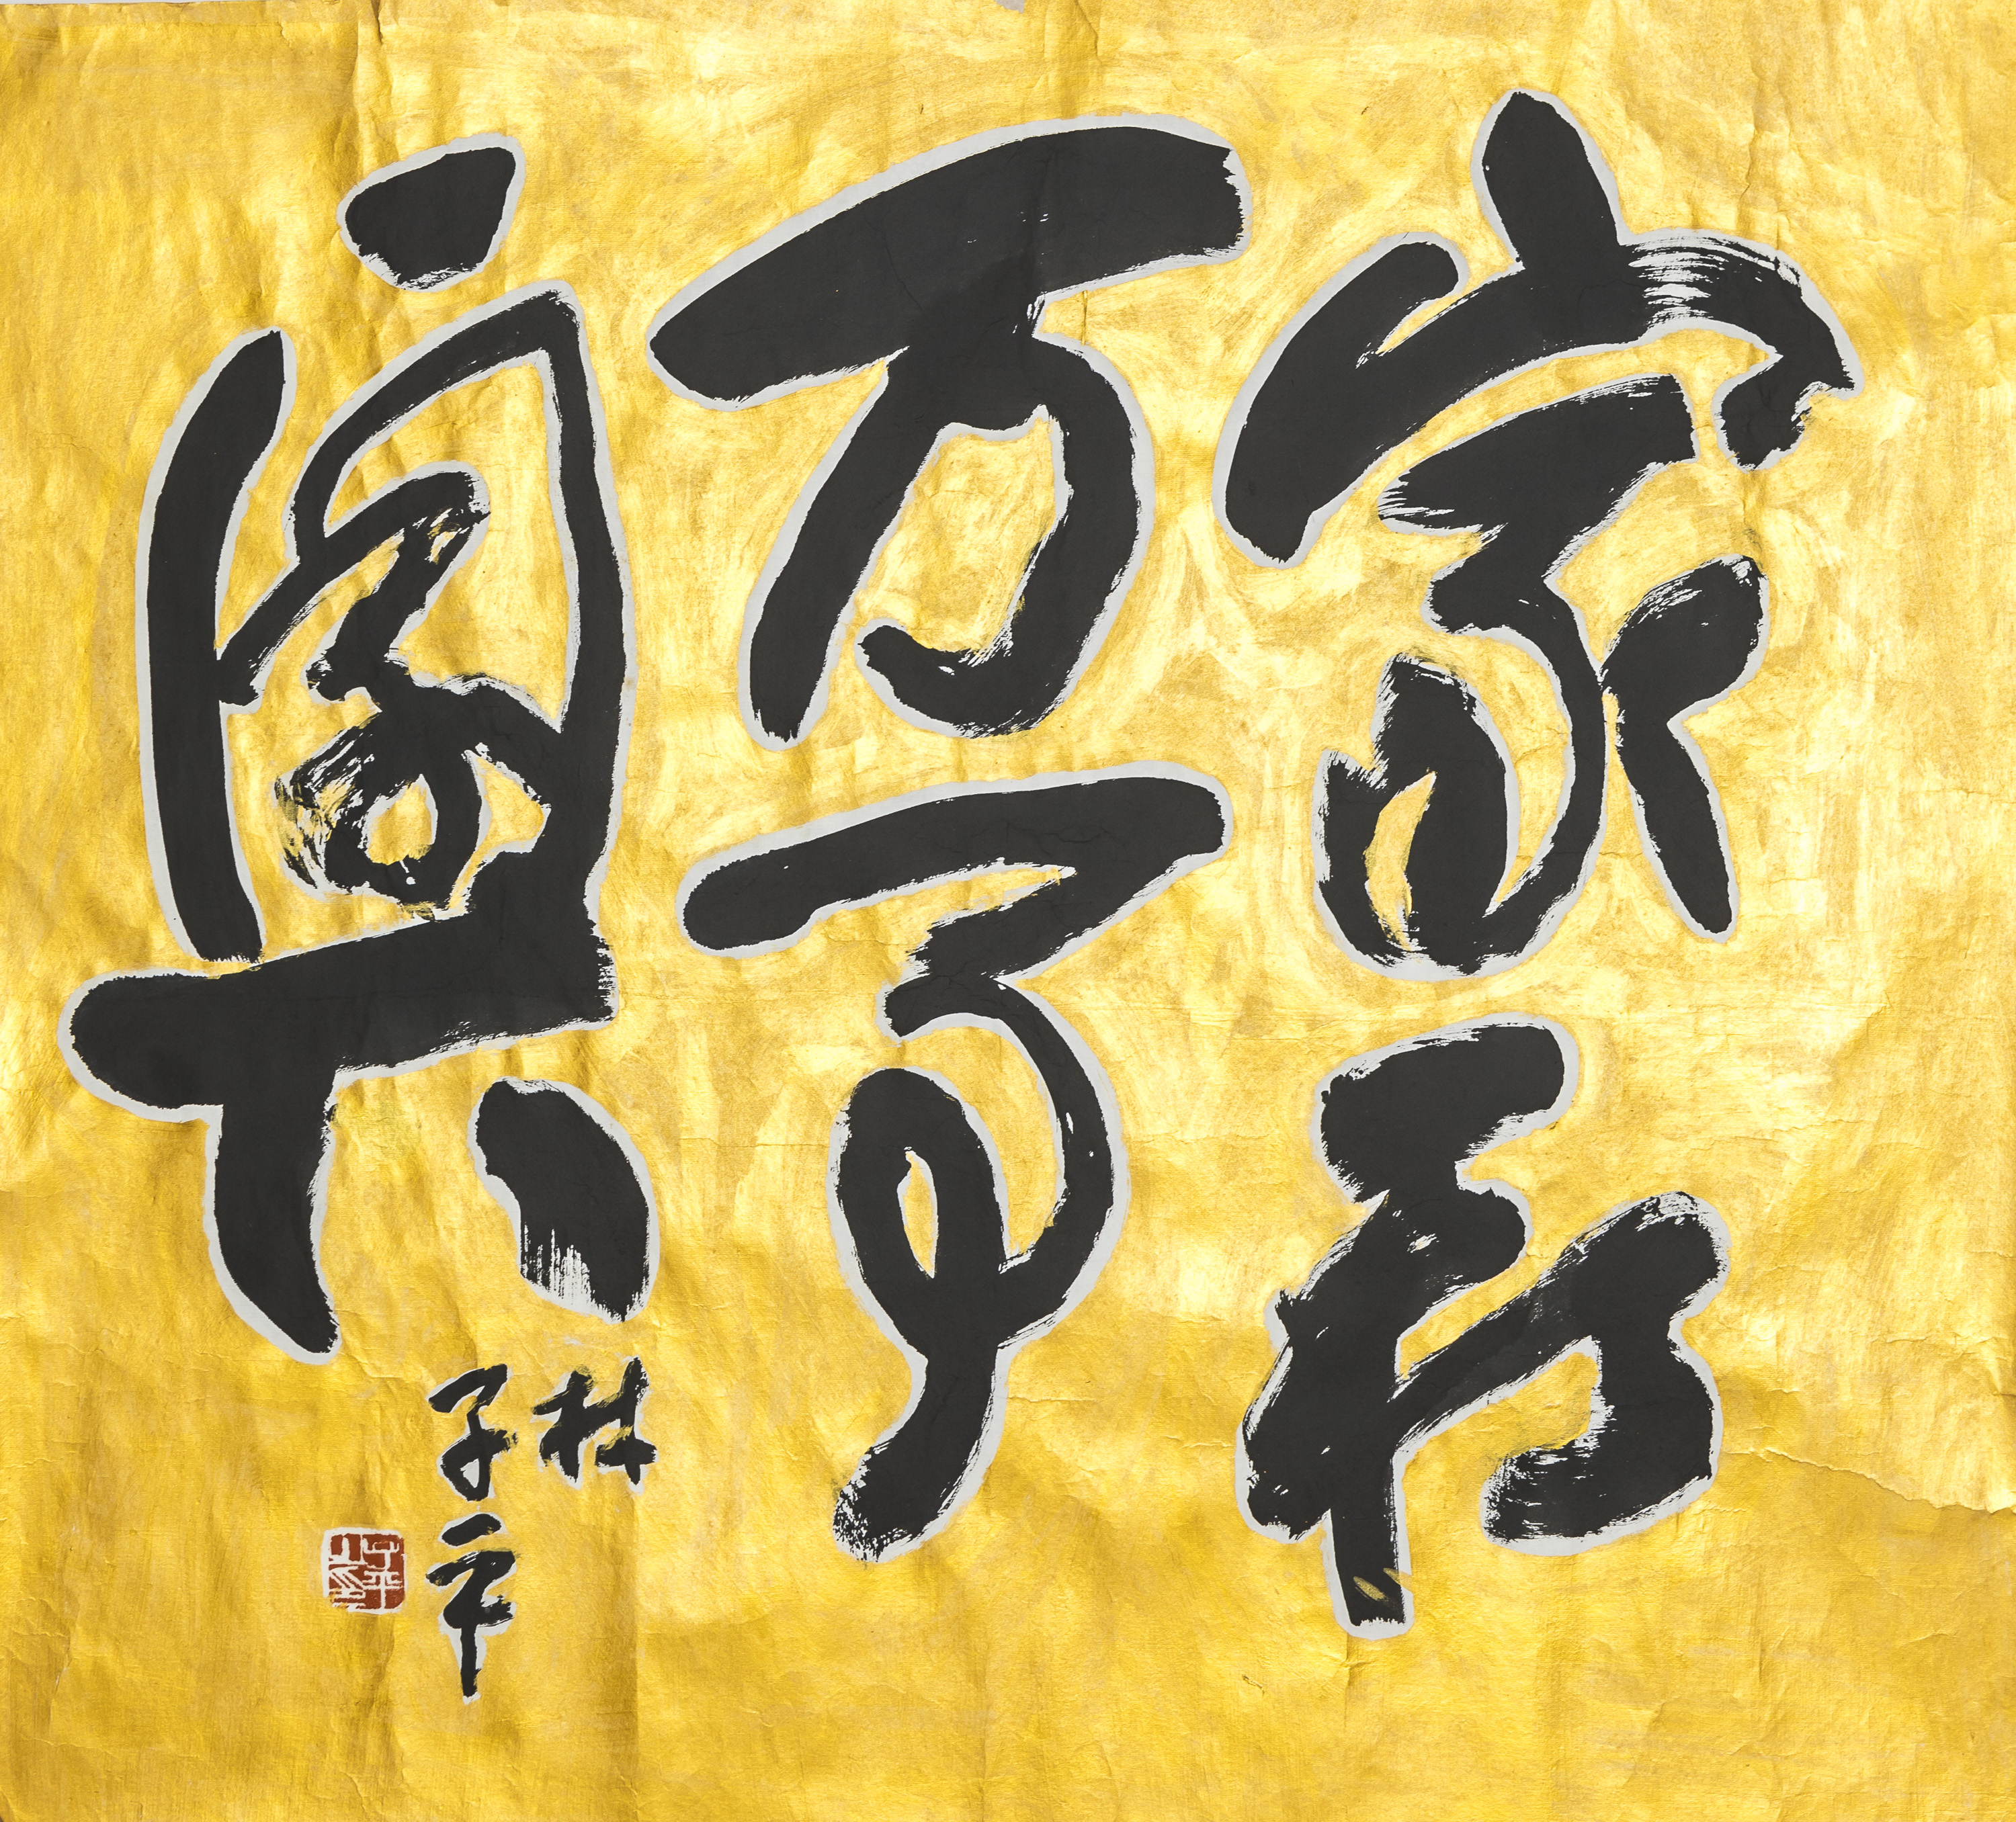 家和
万事
興
林
子平
子平